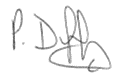 P. Duffy